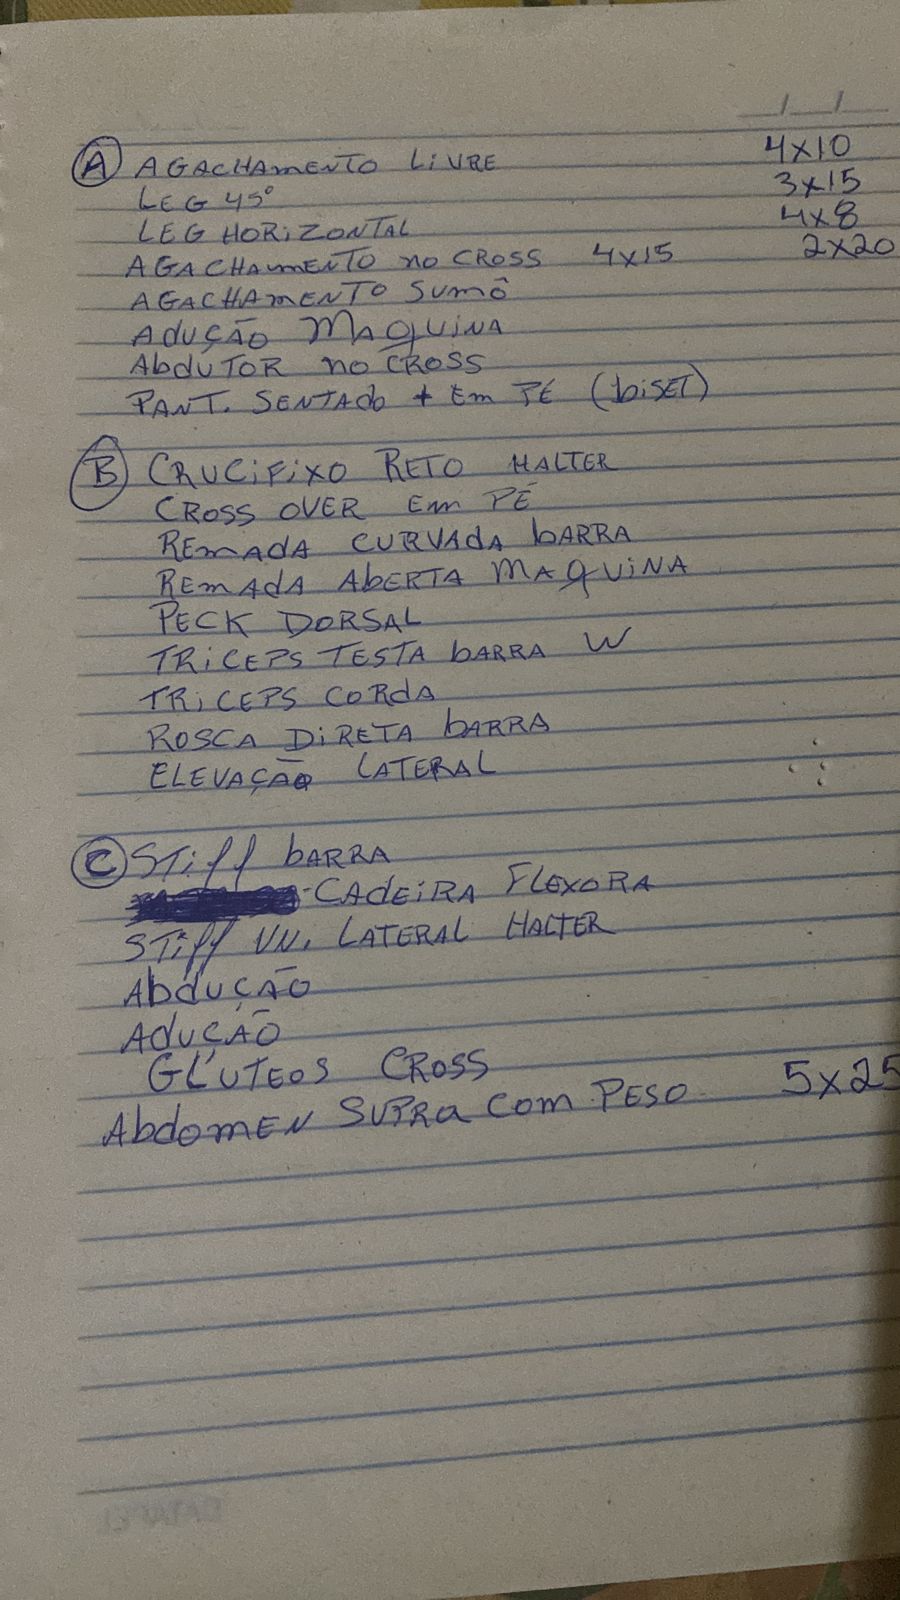 __/__/__
A AGACHAMENTO LIVRE 4x10
LEG 45° 3x15
LEG HORIZONTAL 4x8
AGACHAMENTO NO CROSS 4x15 2x20
AGACHAMENTO SUMÔ
ADUÇÃO MAQUINA
ABDUTOR NO CROSS
PANT. SENTADO + EM PÉ (BISET)
B CRUCIFIXO RETO HALTER
CROSS OVER EM PÉ
REMADA CURVADA BARRA
REMADA ABERTA MAQUINA
PECK DORSAL
TRICEPS TESTA BARRA W
TRICEPS CORDA
ROSCA DIRETA BARRA
ELEVAÇÃO LATERAL
C STIFF BARRA
CADEIRA FLEXORA
STIFF UN. LATERAL HALTER
ABDUÇÃO
ADUÇÃO
GLÚTEOS CROSS
ABDOMEN SUPRA COM PESO 5x25